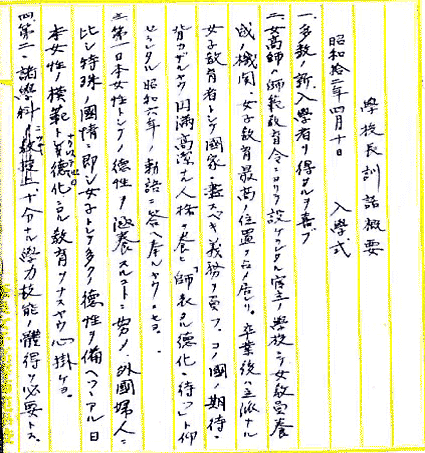 學校長訓話概要
昭和拾二年四月十日　入學式
一、多數ノ新入學者ヲ得タルヲ喜ブ
二、女高師ハ師範教育令ニヨリテ設ケラレタル官立ノ學校ニテ女教員養
成ノ機関、女子教育最高ノ位置ヲ占メ居レリ。卒業後ハ立派ナル
女子教育者トシテ國家ニ盡スベキ義務ヲ負フ。コノ國ノ期待ニ
背カザルヤウ円満高潔ナル人格ヲ養ヒ「師表タル德化ニ待ツ」ト仰
セラレタル昭和六年ノ勅語ニ答ヘ奉ルヤウニセヨ。
三、第一日本女性トシテノ德性ヲ涵養スルコトニ努メ、外國婦人ニ
比シ特殊ノ國情ニ即シ女子トシテ多クノ德性ヲ備ヘツヽアル日
本女性ノ模範トナリ德化ニヨル教育ヲナスヤウ心掛ケヨ。
四、第二、諸學科ノ教授上十分ナル學力技能ノ體得ヲ必要トス。